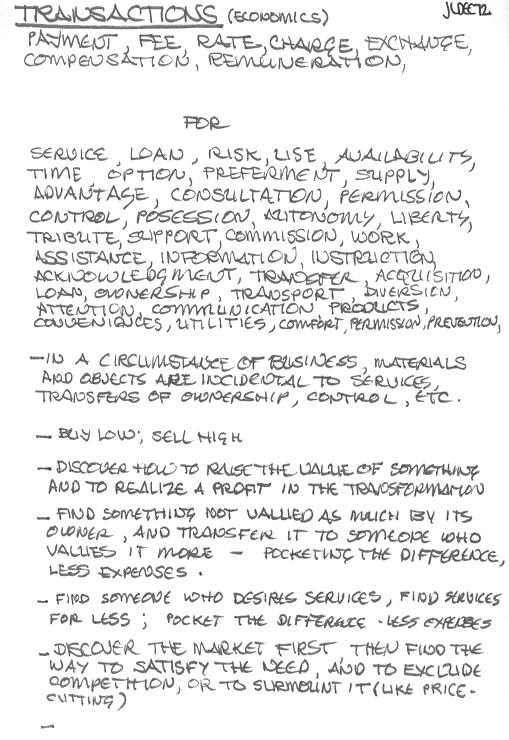 TRANSACTIONS (ECONOMICS)
PAYMENT, FEE, RATE, CHARGE, EXCHANGE,
COMPENSATION, REMUNERATION,
FOR
SERVICE, LOAN, RISK, USE, AVAILABILITY,
TIME, OPTION, PREFERMENT, SUPPLY,
ADVANTAGE, CONSULTATION, PERMISSION,
CONTROL, POSESSION, AUTONOMY, LIBERTY,
TRIBUTE, SUPPORT, COMMISSION, WORK,
ASSISTANCE, INFORMATION, INSTRUCTION,
ACKNOWLEDGMENT, TRANSFER, ACQUISITION,
LOAN, OWNERSHIP, TRANSPORT, DIVERSION,
ATTENTION, COMMUNICATION, PRODUCTS,
CONVENIENCES, UTILITIES, COMFORT, PERMISSION, PREVENTION,
- IN A CIRCUMSTANCE OF BUSINESS, MATERIALS
AND OBJECTS ARE INCIDENTAL TO SERVICES,
TRANSFERS OF OWNERSHIP, CONTROL, ETC.
- BUY LOW; SELL HIGH
- DISCOVER HOW TO RAISE THE VALUE OF SOMETHING
AND TO REALIZE A PROFIT IN THE TRANSFORMATION
- FIND SOMETHING NOT VALUED AS MUCH BY ITS
OWNER, AND TRANSFER IT TO SOMEONE WHO
VALUES IT MORE - POCKETING THE DIFFERENCE,
LESS EXPENSES.
- FIND SOMEONE WHO DESIRES SERVICES, FIND SERVICES
FOR LESS; POCKET THE DIFFERENCE - LESS EXPENSES
- DISCOVER THE MARKET FIRST, THEN FIND THE
WAY TO SATISFY THE NEED, AND TO EXCLUDE
COMPETITION, OR TO SURMOUNT IT (LIKE PRICE-
CUTTING)
-